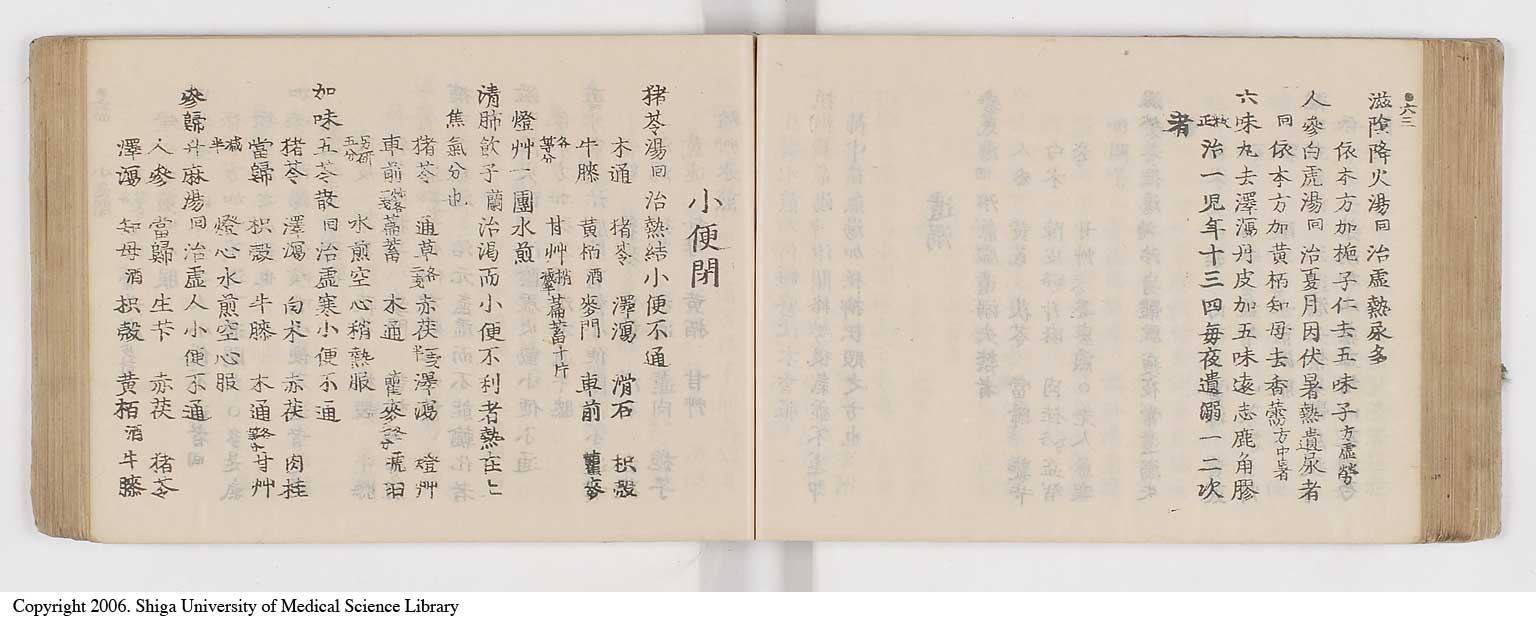 六三
滋陰降火湯回治虚熱尿多
依本方加梔子仁去五味子方虚勞
人參白虎湯回治夏月因伏暑熱遺尿者
回依本方加黄栢知母去香薷方中暑
六味丸去澤瀉丹皮加五味遠志鹿角膠
治一児年十三四毎夜遺溺一二次
者
小便閉
猪苓湯回治熱結小便不通
木通 猪苓 澤瀉 滑石 枳殻
牛膝 黄栢酒 麥門 車前 瞿麥
各等分 甘艸梢 萹蓄十片
燈艸一團水煎
清肺飲子蘭治渇而小便不利者熱在上
焦氣分也
猪苓 通草 赤茯 澤瀉 燈艸
車前 萹蓄 木通 瞿麥 琥珀
五分 水煎空心稍熱服
加味五苓散回治虚寒小便不通
猪苓 澤瀉 白朮 赤茯 肉桂
當歸 枳殻 牛膝 木通 甘艸
減半 燈心水煎空心服
參歸升麻湯回治虚人小便不通
人參 當歸 生芐 赤茯 猪苓
澤瀉 知母酒 枳殻 黄栢酒 牛膝